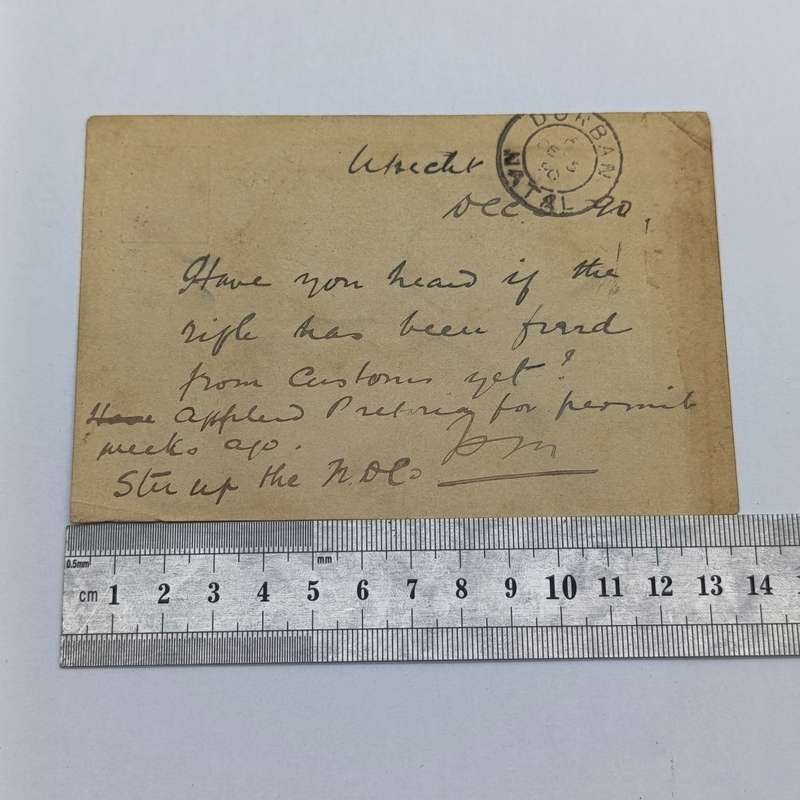 Utrecht
DURBAN
NATAL
Dec 90
Have you heard if the
rifle has been freed
from Customs yet?
Have applied Pretoria for permit
weeks ago.
Stir up the N.D.Co
cm 1 2 3 4 5 6 7 8 9 10 11 12 13 14
0.5mm
mm